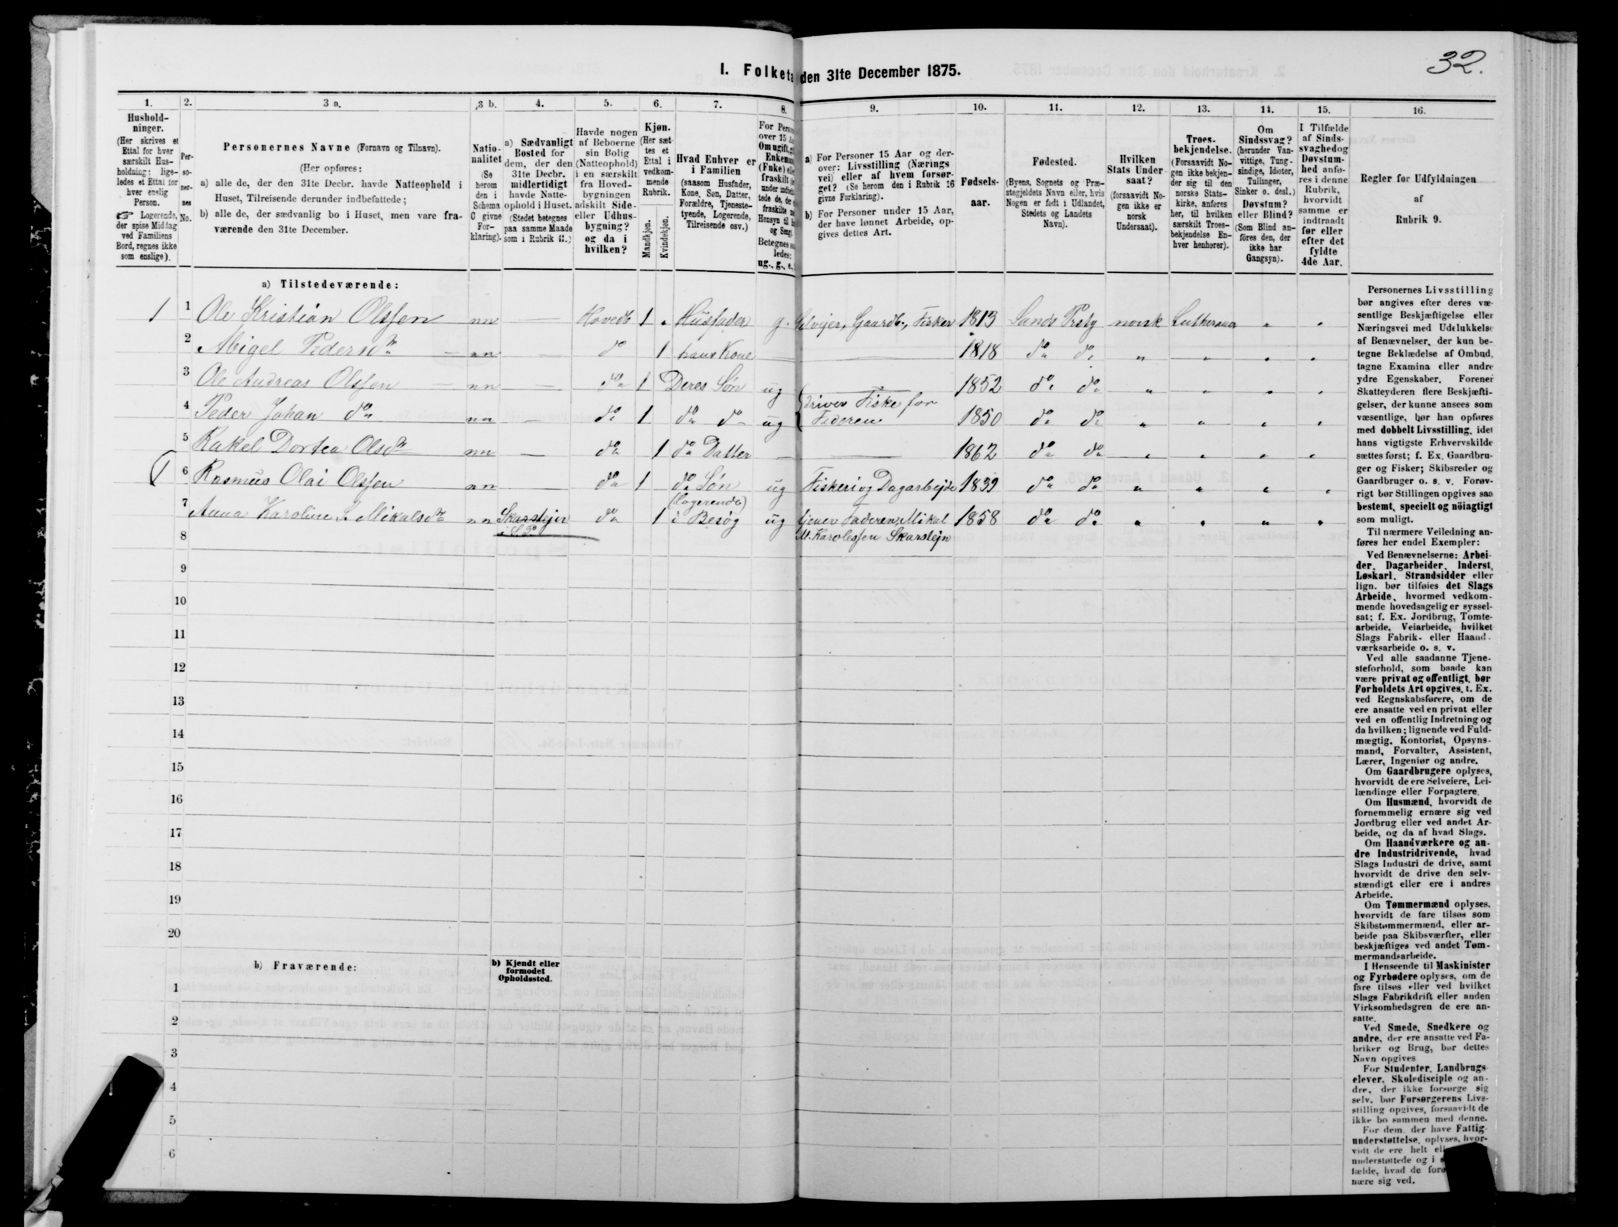 32.
I. Folketæ den 31te December 1875.
1. 2. 3 a. 3 b. 4. 5. 6. 7. 8. 9. 10. 11. 12. 13. 14. 15. 16.
Hushold-
ninger.
(Her skrives et
Ettal for hver
særskilt Hus-
holdning; lige-
ledes et Ettal for
hver enslig
Person.
☞ Logerende,
der spise Middag
ved Familiens
Bord, regnes ikke
som enslige).
Per-
so-
ner-
nes
No.
Personernes Navne (Fornavn og Tilnavn).
(Her opføres:
a) alle de, der den 31te Decbr. havde Natteophold i
Huset, Tilreisende derunder indbefattede;
b) alle de, der sædvanlig bo i Huset, men vare fra-
værende den 31te December.
Natio-
nalitet
(Se
herom
den i
Schema
O givne
For-
klaring).
a) Sædvanligt
Bosted for
dem, der den
31te Decbr.
midlertidigt
havde Natte-
ophold i Huset.
(Stedet betegnes
paa samme Maade
som i Rubrik 11.)
Havde nogen
af Beboerne
sin Bolig
(Natteophold)
i en særskilt
fra Hoved-
bygningen
adskilt Side-
eller Udhus-
bygning?
og da i
hvilken?
Kjøn.
(Her sæt-
tes et
Ettal i
vedkom-
mende
Rubrik.
Mandkjøn.
Kvindekjøn.
Hvad Enhver er
i Familien
(saasom Husfader,
Kone, Søn, Datter,
Forældre, Tjeneste-
tyende, Logerende,
Tilreisende osv.)
For Person
over 15 Aa
Om ugift, g
Enkeman
(Enke) elle
fraskilt
ug., g., e.,
a) For Personer 15 Aar og der-
over: Livsstilling (Nærings
vei) eller af hvem forsør-
get? (Se herom den i Rubrik 16
givne Forklaring).
b) For Personer under 15 Aar,
der have lønnet Arbeide, op-
gives dettes Art.
Fødsels-
aar.
Fødested.
(Byens, Sognets og Præ-
stegjeldets Navn eller, hvis
Nogen er født i Udlandet,
Stedets og Landets
Navn).
Hvilken
Stats Under
saat?
(forsaavidt No-
gen ikke er
norsk
Undersaat).
Troes-
bekjendelse.
(Forsaavidt No-
gen ikke bekjen-
der sig til den
norske Stats-
kirke, anføres
her, til hvilken
særskilt Troes-
bekjendelse En-
hver henhører).
Om
Sindssvag?
(herunder Van-
vittige, Tung-
sindige, Idioter,
Tullinger,
Sinker o. desl.)
Døvstum?
eller Blind?
(Som Blind an-
føres den, der
ikke har
Gangsyn).
I Tilfælde
af Sinds-
svaghed og
Døvstum-
hed anfø-
res i denne
Rubrik,
hvorvidt
samme er
indtraadt
før eller
efter det
fyldte
4de Aar.
Regler for Udfyldningen
af
Rubrik 9.
a) Tilstedeværende:
1 1 Ole Kristian Olssen nn — Hovedb 1 „ Husfader g. Selveier, Gaardb., Fisker 1813 Sands Prstg norsk Lutheraner „ „
2 Abigel Pedersdr nn do 1 hans Kone — 1818 do do „ „ „ „
3 Ole Andreas Olssen nn — do 1 Deres Søn ug drive Fiske for 1852 do do „ „ „ „
4 Peder Johan do nn — do 1 do do ug Faderen 1850 do do „ „ „ „
5 Rakel Dortea Olsdr nn — do 1 do Datter — 1862 do do „ „ „ „
(1 6 Rasmus Olai Olssen nn — do 1 do Søn (logerende) ug Fiskeri og Dagarbejde 1839 do do „ „ „ „
7 Anna Karoline S. Mikalsdr nn Skarstejn i S.P. do 1 i Besøg ug tjener Faderen Mikal 1858 do do „ „ „ „
8 M. Karolessen Skarstejn
9
10
11
12
13
14
15
16
17
18
19
20
b) Fraværende:
b) Kjendt eller
formodet
Opholdssted.
1
2
3
4
5
6
Personernes Livsstilling
bør angives efter deres væ-
sentlige Beskjæftigelse eller
Næringsvei med Udelukkelse
af Benævnelser, der kun be-
tegne Beklædelse af Ombud,
tagne Examina eller andre
ydre Egenskaber. Forener
Skatteyderen flere Beskjæfti-
gelser, der kunne ansees som
væsentlige, bør han opføres
med dobbelt Livsstilling, idet
hans vigtigste Erhvervskilde
sættes først; f. Ex. Gaardbru-
ger og Fisker; Skibsreder og
Gaardbruger o. s. v. Forøv-
rigt bør Stillingen opgives saa
bestemt, specielt og nöiagtigt
som muligt.
Til nærmere Veiledning an-
føres her endel Exempler:
Ved Benævnelserne: Arbei-
der, Dagarbeider, Inderst,
Løskarl, Strandsidder eller
lign. bør tilføies det Slags
Arbeide, hvormed vedkom-
mende hovedsagelig er syssel-
sat; f. Ex. Jordbrug, Tomte-
arbeide, Veiarbeide, hvilket
Slags Fabrik- eller Haand-
værksarbeide o. s. v.
Ved alle saadanne Tjene-
steforhold, som baade kan
være privat og offentligt, bør
Forholdets Art opgives, t. Ex.
ved Regnskabsførere, om de
ere ansatte ved en privat eller
ved en offentlig Indretning og
da hvilken; lignende ved Fuld-
mægtig, Kontorist, Opsyns-
mand, Forvalter, Assistent,
Lærer, Ingeniør og andre.
Om Gaardbrugere oplyses,
hvorvidt de ere Selveiere, Lei-
lændinge eller Forpagtere.
Om Husmænd, hvorvidt de
fornemmelig ernære sig ved
Jordbrug eller ved andet Ar-
beide, og da af hvad Slags.
Om Haandværkere og an-
dre Industridrivende, hvad
Slags Industri de drive, samt
hvorvidt de drive den selv-
stændigt eller ere i andres
Arbeide.
Om Tømmermænd oplyses,
hvorvidt de fare tilsøs som
Skibstømmermænd, eller ar-
beide paa Skibsværfter, eller
beskjæftiges ved andet Tøm-
mermandsarbeide.
I Henseende til Maskinister
og Fyrbødere oplyses, om de
fare tilsøs eller ved hvilket
Slags Fabrikdrift eller anden
Virksomhedsgren de ere an-
satte.
Ved Smede, Snedkere og
andre, der ere ansatte ved Fa-
briker og Brug, bør dettes
Navn opgives
For Studenter, Landbrugs-
elever, Skoledisciple og an-
dre, der ikke forsørge sig
selv, bør Forsørgerens Livs-
stilling opgives, forsaavidt de
ikke bo sammen med denne.
For dem, der have Fattig-
understøttelse, oplyses, hvor-
vidt de ere helt
understøttede og i
fælde, hvad de
nære sig ved.